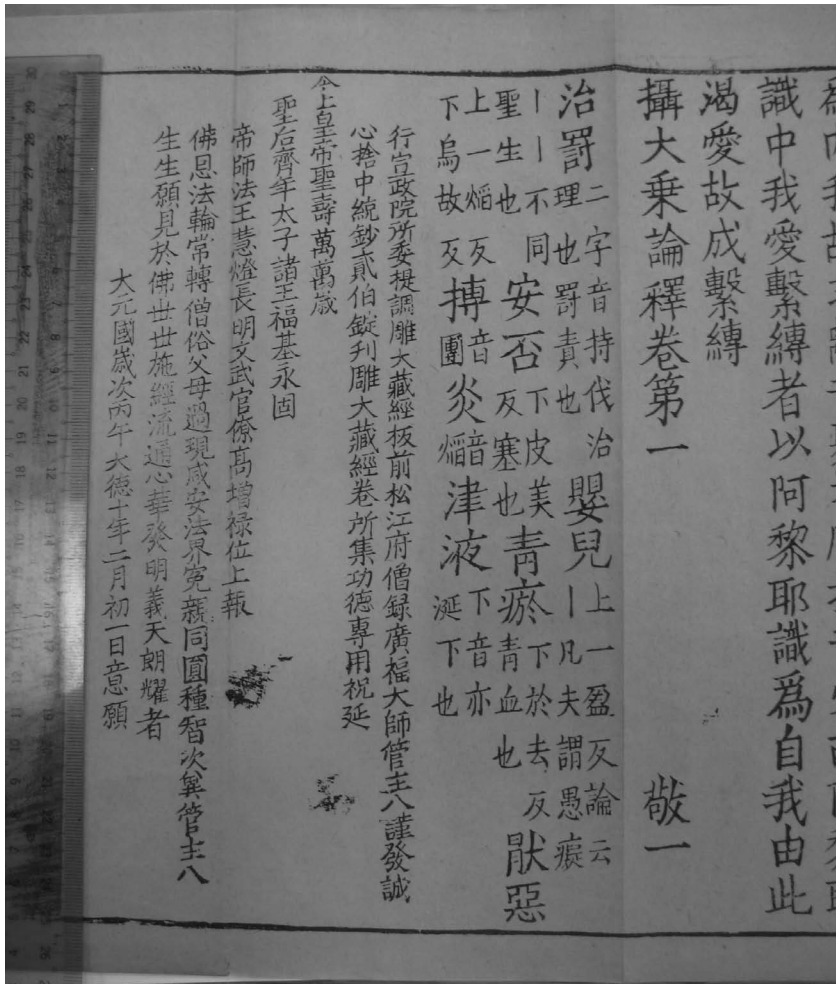 識中我愛繫縛者以阿黎耶識為自我由此
渴愛故成繫縛
攝大乗論釋卷第一 敬一
治罰二字音持伐治理也罰責也嬰兒上一盈反論云丨凡夫謂愚癡
丨丨不同聖生也安否下皮美反塞也青瘀下於去反青血也猒惡
上一熖反下烏故反摶音團炎音熖津液下音亦涎下也
行宣政院所委提調雕大藏經板前松江府僧録廣福大師管主八謹發誠
心捨中統鈔貳伯錠刋雕大藏經卷所集功德專用祝延
今上皇帝聖壽萬萬歳
聖后齊年太子諸王福基永固
帝師法王慧燈長明文武官僚髙增禄位上報
佛恩法輪常轉僧俗父母過現咸安法界寃親同圓種智次兾管主八
生生願見於佛世世施經流通心華發明義天朗耀者
大元國歳次丙午大德十年二月初一日意願